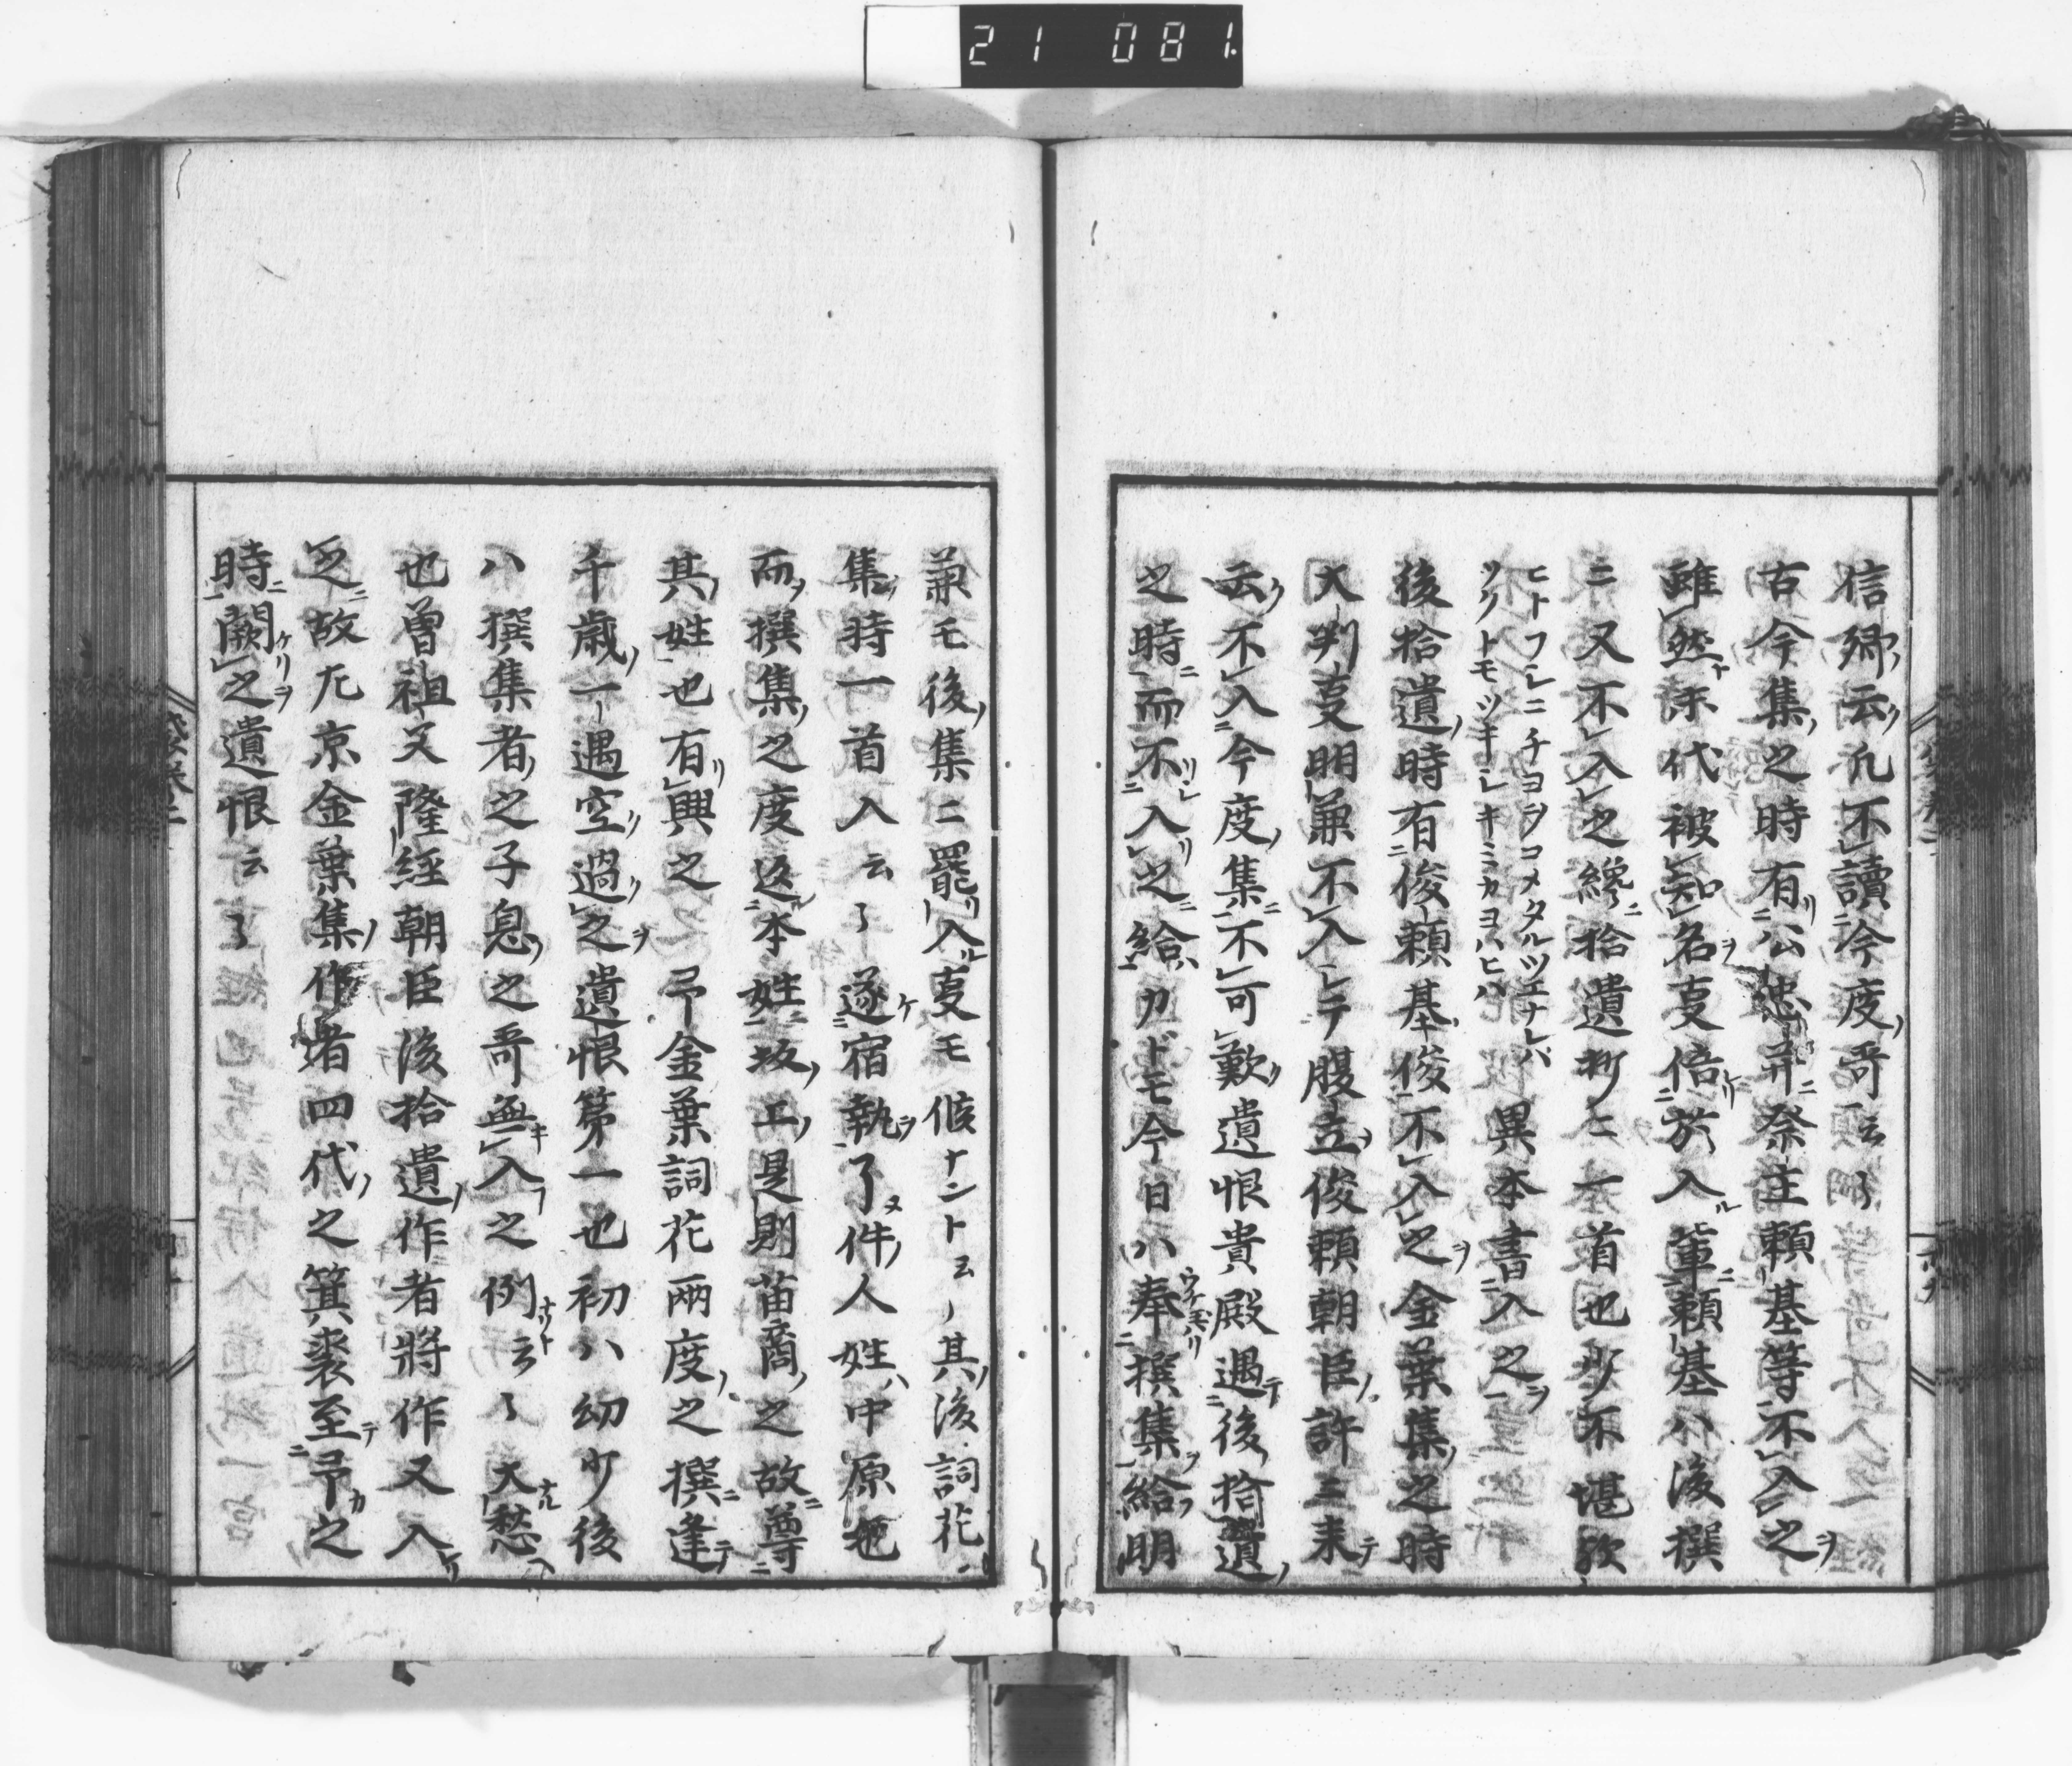 21 081
信卿云凡不讀今度哥云々
古今集之時有公忠并祭主頼基等不入之
雖然末代被知名事倍於入輩頼基ハ後撰
ニ又不入之纔拾遺抄ニ一首也少不堪歟
ヒトフシニチヨヲコメタルツエナレバ
ツクトモツキシキミカヨハヒハ 異本書入之
後拾遺時有俊頼基俊不入之金葉集之時
大判事明兼不入シテ腹立俊頼朝臣許ニ来テ
云不入今度集不可歎遺恨貴殿遇後拾遺
之時而不入之給カドモ今日ハ奉撰集給明
兼モ後集ニ罷入事モ候ナント云々其後詞花
集時一首入云々遂宿執了件人姓ハ中原也
而撰集之度返本姓坂上是則苗裔之故尊
其姓也有興之 予金葉詞花兩度之撰逢
千歳一遇空過之遺恨第一也初ハ幼少後
ハ撰集者之子息之哥無入之例云々大愁
也曽祖父隆経朝臣後拾遺作者將作又入
之故左京金葉集作者四代之箕裘至予之
時闕之遺恨云々